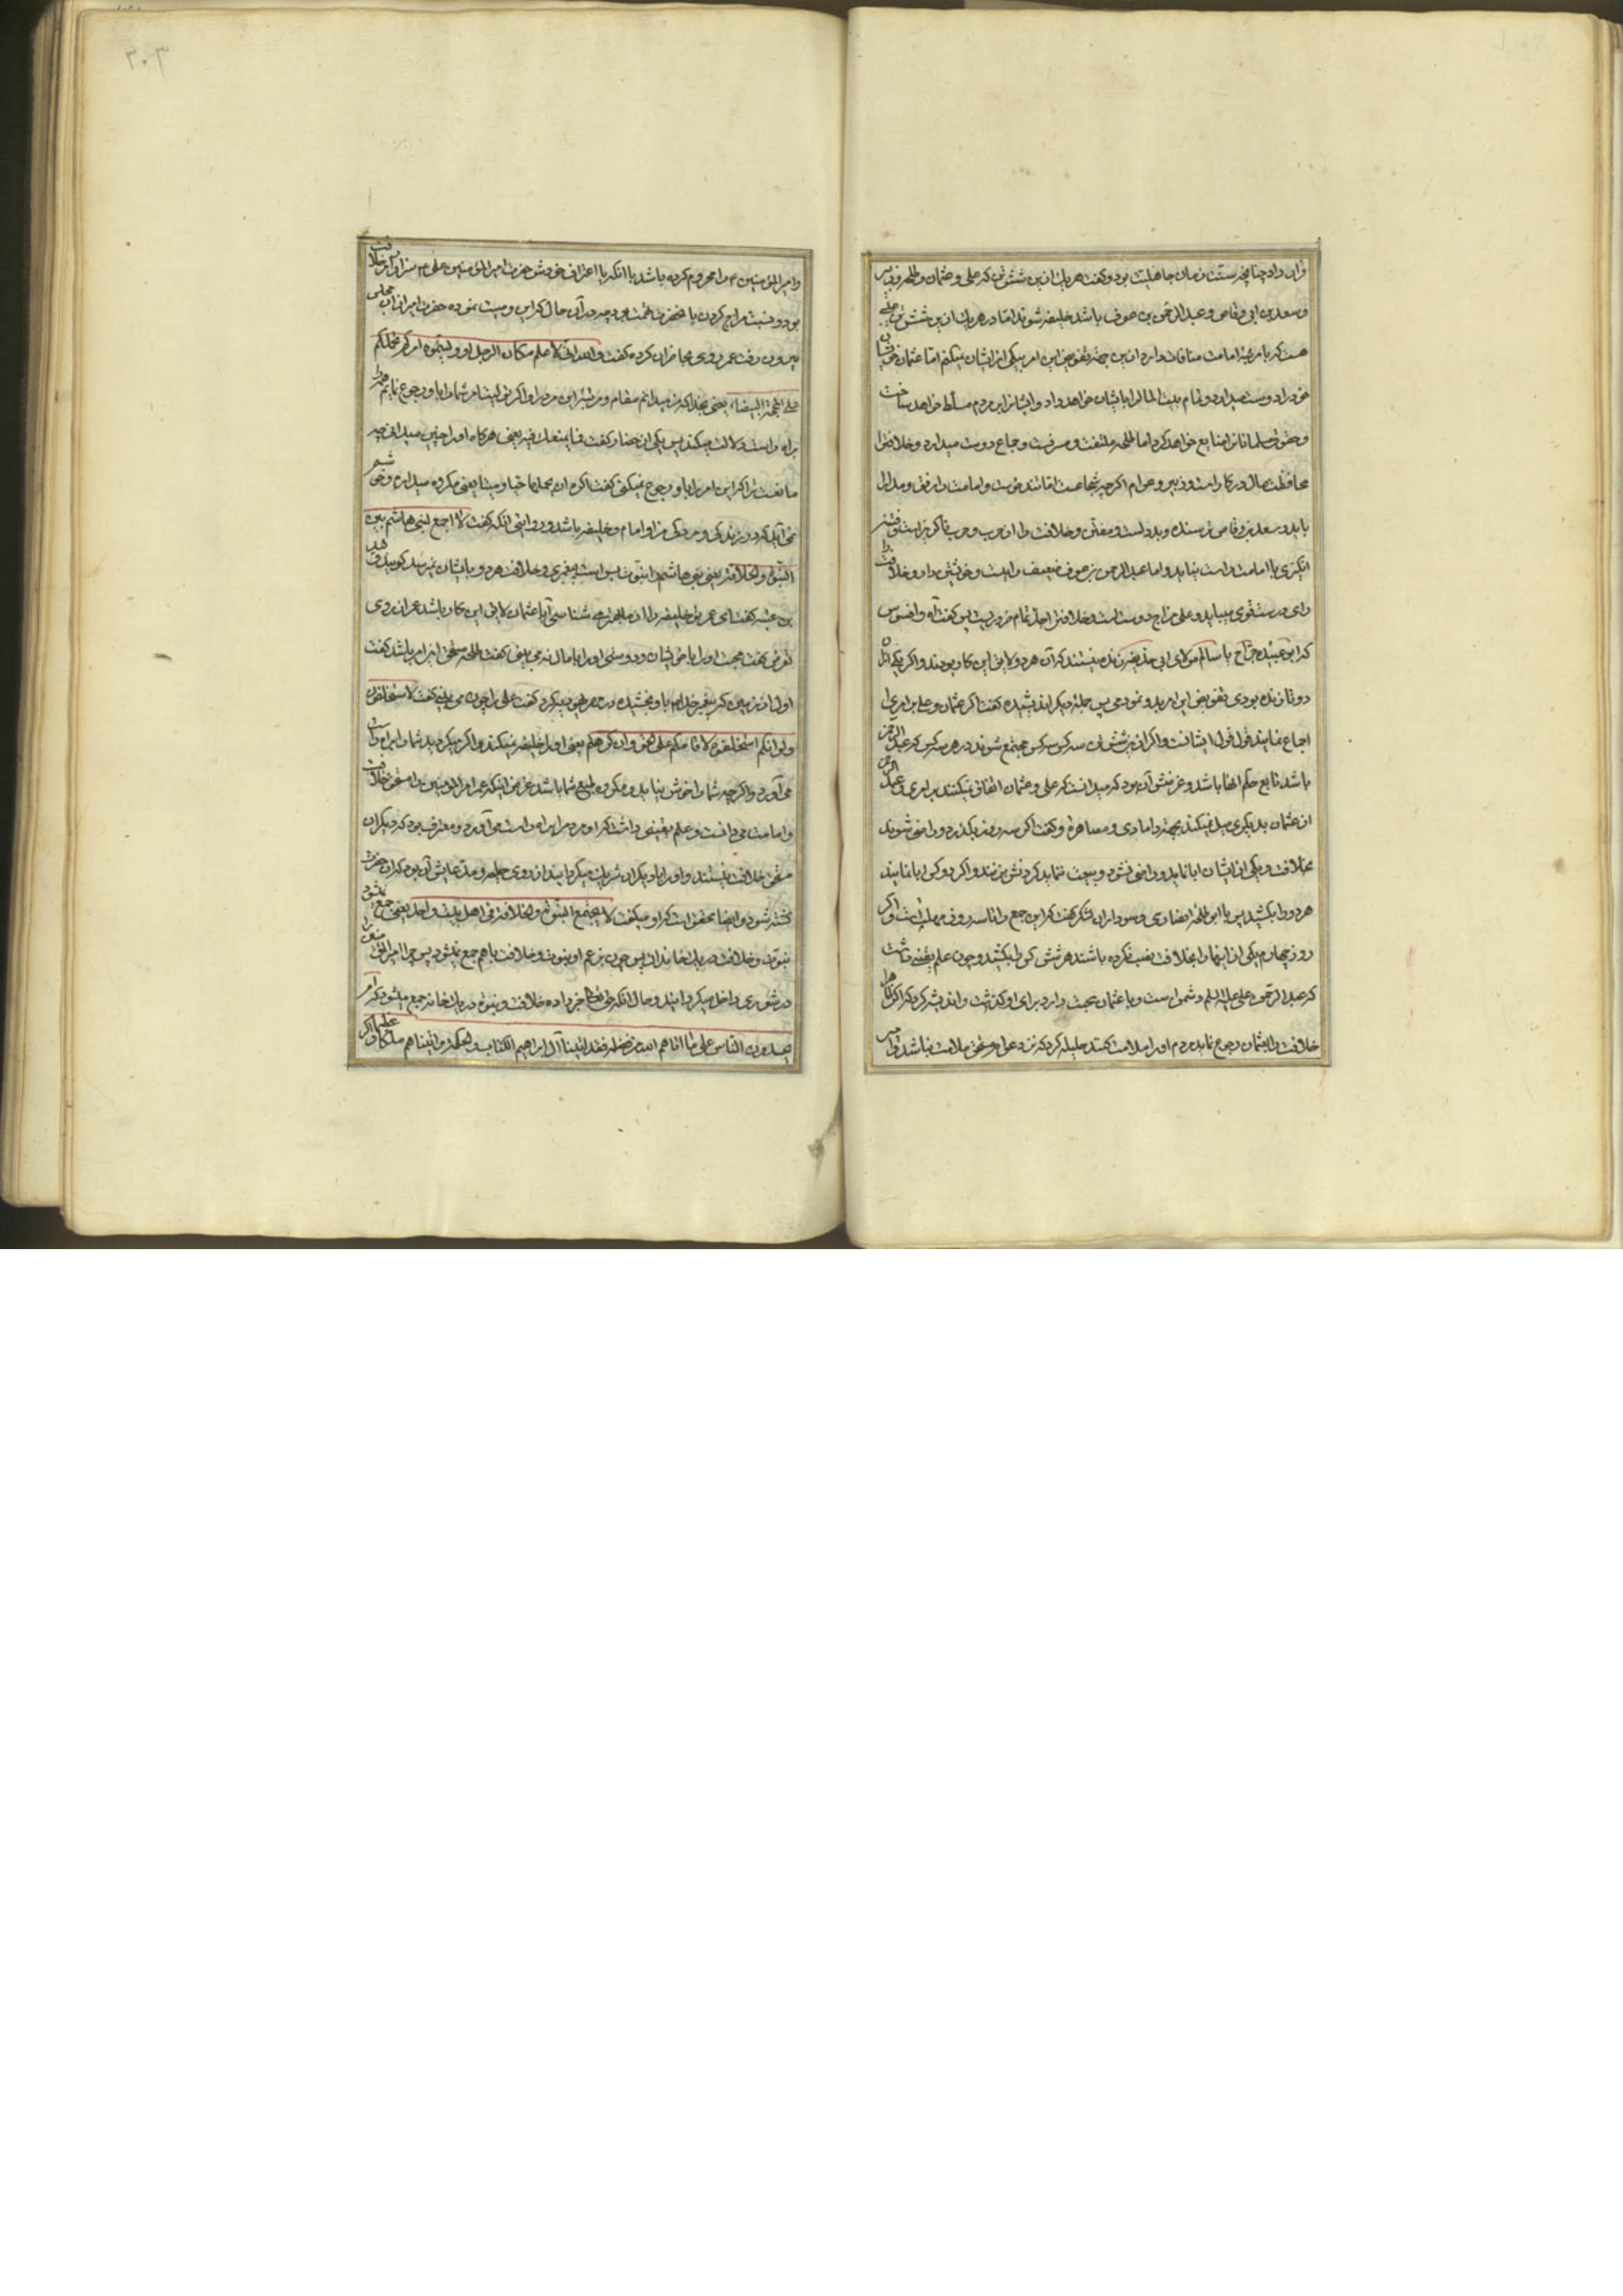 قران داد چنانچه سنت زمان جاهلیت بود و کفت هر یک از این شش تن که علی و عثمان و طلحه و زبیر
و سعد بن ابی وقاص و عبد الرحمن بن عوف باشد خلیفه شوند اما در هر یک از این شش تن
هست که با مرتبه امامت منافات دارد از این جهة تفویض این امر بیکی از ایشان نمیکنم اما عثمان خویشان
خود را دوست میدارد و تمام بیت المال را بایشان خواهد داد و ایشان را بر این مردم مسلط خواهد ساخت
و حقوق مسلمانان را ضایع خواهد کرد اما طلحه و جماع دوست میدارد و خلافت را
محافظت مال در کار است و زبیر و عوام اکر چه شجاعت
باید و سعد بن وقاص و خلافت را از حرب و حرب ناکزیر است
انکیزی با امامت راست نیاید و اما عبد الرحمن بن عوف ضعیف رایست و خلافت را
رای درست قوی میباید و علی مزاح دوست است و خلافت را جد تمام ضرور است پس کفت آه و افسوس
که ابو عبیده جراح یا سالم مولای ابی حذیفه زنده نیستند که آن هر دو لایق این کار بودند و اکر یکی از آن
دو تا زنده بودی تفویض این امر بدو نمودمی پس حیله دیکر اندیشیده کفت اکر عثمان و علی بر امری
اجماع نمایند قول قول ایشانست و اکر از این شش تن سه کس سه کس مجتمع شوند در هر سه کس که عبد الرحمن
باشد تابع حکم آنها باشد و غرضش آن بود که میدانست که علی و عثمان اتفاق نمیکنند بر امری و عبد الرحمن
از عثمان بدیکری میل نمیکند بجهة دامادی و مصاهرة و کفت اکر سه روز بکذرد و راضی نشوند
بخلافت و یکی از ایشان ابا نماید و راضی نشود و بیعت ننماید کردنش بزنند و اکر دو کس ابا نمایند
هر دو را بکشید پس با ابو طلحه انصاری و سوداران لشکر کفت که این جمع را تا سه روز مهلتست و اکر
روز چهارم یکی از اینها را بخلافت نصب نکرده باشند هر شش کس را بکشید و چون علم یقینی داشت
که عبد الرحمن علی علیه السلم دشمن است و با عثمان محبت دارد برای او کذشت و اندیشه کرد که اکر
خلافت را بعثمان رجوع نماید مردم او را ملامت کنند حیله کرد که نزد عوام مستحق ملامت نباشد
و امیر المؤمنین را محروم کرده باشد با انکه با اعتراف خودش حضرت امیر المؤمنین علی سزاوار خلافت
بود و نسبت مزاح کردن بآنحضرت تهمت بود چه در آن حال که این وصیت نموده حضرت امیر از آن مجلس
بیرون رفت عمر روی بحاضران کرده کفت و الله انی لاعلم مکان الرجل لو ولیتموه امرکم تحملکم
علی المحجة البیضاء یعنی بخدا که من میدانم مقام و مرتبه این مرد را و اکر تولیت امر شما را باو رجوع نمایم شما را
براه راست دلالت میکند پس یکی از حضار کفت فما یمنعک منه یعنی هرکاه او را چنین میدانی چه
مانعست ترا که این امر را باو رجوع نمیکنی کفت اکره ان تحملها حیا و میتا یعنی مکروه میدارم و خوشم
نمی آید که در زندکی و مردکی من او امام و خلیفه باشد و روایتی آنکه کفت لا اجمع لبنی هاشم بین
النبوة و الخلافة یعنی بنی هاشم را نبوت بس است پیغمبری و خلافت هر دو بایشان نمیرسد کویند
کفت ای عمر تو خلیفه را از ما بهتر می شناسی آیا عثمان لایق این کار باشد عمر از روی
تعرض کفت محبت او را با خویشان و دوستی او را با مال نمی بینی کفت طلحه مستحق این امر باشد کفت
کفت علی را چون می بینی کفت لا استخلفه
و لو انکم استخلفتموه لاقامکم علی الحق و ان کرهتم یعنی او را خلیفه نمیکنند و اکر میکردید شما را براه راست
می آورد و اکر چه شما را خوش نیاید و مکروه طبع شما باشد غرض اینکه عمر امیر المؤمنین را مستحق خلافت
و امامت می دانست و علم یقینی داشت که او مردم را براه راست می آورد و معترف بود که دیکران
مستحق خلافت نیستند و او را با دیکران شریک میکردانید از روی حیله و مدعایش آن بود که آن حضرت
کشته شود و ایضا محقق است که او میکفت لا یجتمع النبوة و الخلافة فی اهل بیت واحد یعنی جمع نمیشود
نبوت و خلافت در یک خاندان پس چون بزعم او نبوت و خلافت با هم جمع نمیشود پس چرا امیر المؤمنین را
در شوری داخل میکردانید و حال آنکه حق تعالی خبر داده خلافت و نبوة در یک خانه جمع میشود که ام
یحسدون الناس علی ما اتاهم الله من فضله فقد اتینا آل ابراهیم الکتاب و الحکمة و اتیناهم ملکا عظیما و اکر
۳۰۳